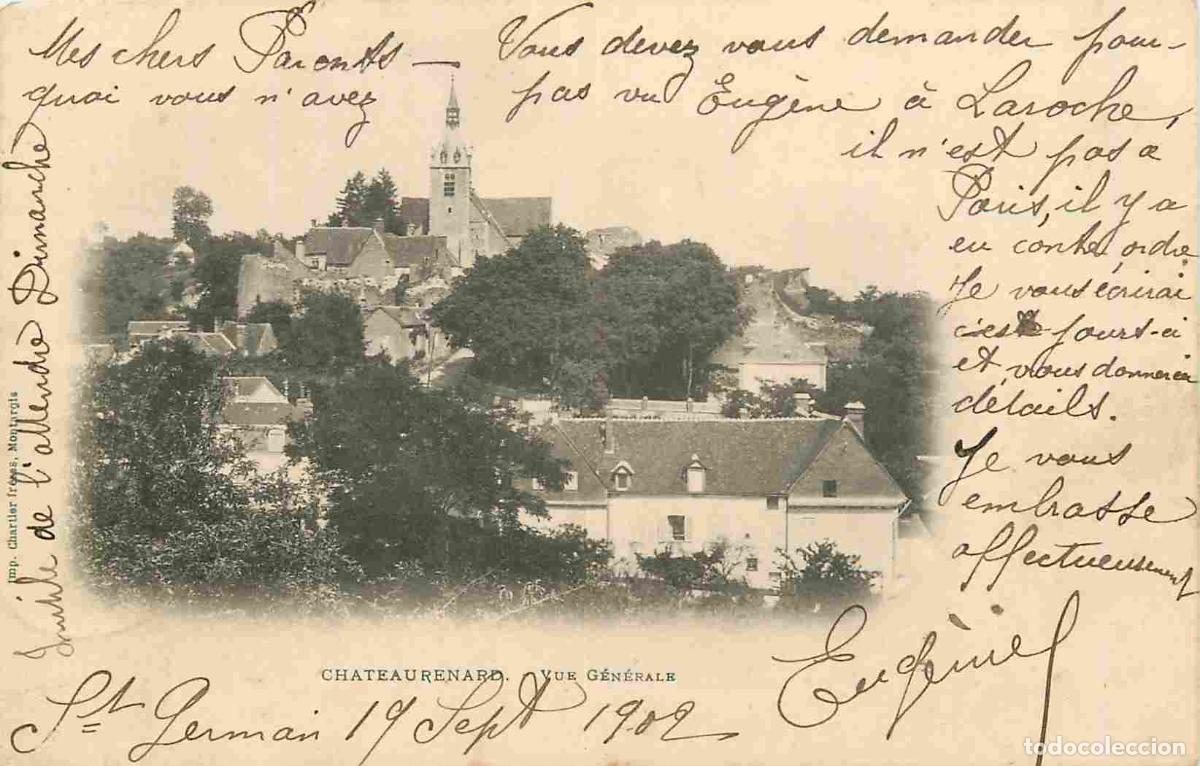 Mes chers Parents — Vous devez vous demander pour-
quoi vous n'avez pas vu Eugène à Laroche,
il n'est pas a
Paris, il y a
eu contre, ordre.
Je vous écrirai
ces jours-ci
et vous donnerai
détails.
Je vous
embrasse
affectueusement
Eugénie
Inutile de l'attendre Dimanche
Imp. Chartier frères, Montargis
CHATEAURENARD. VUE GÉNÉRALE
St Germain 19 Sept 1902
todocoleccion